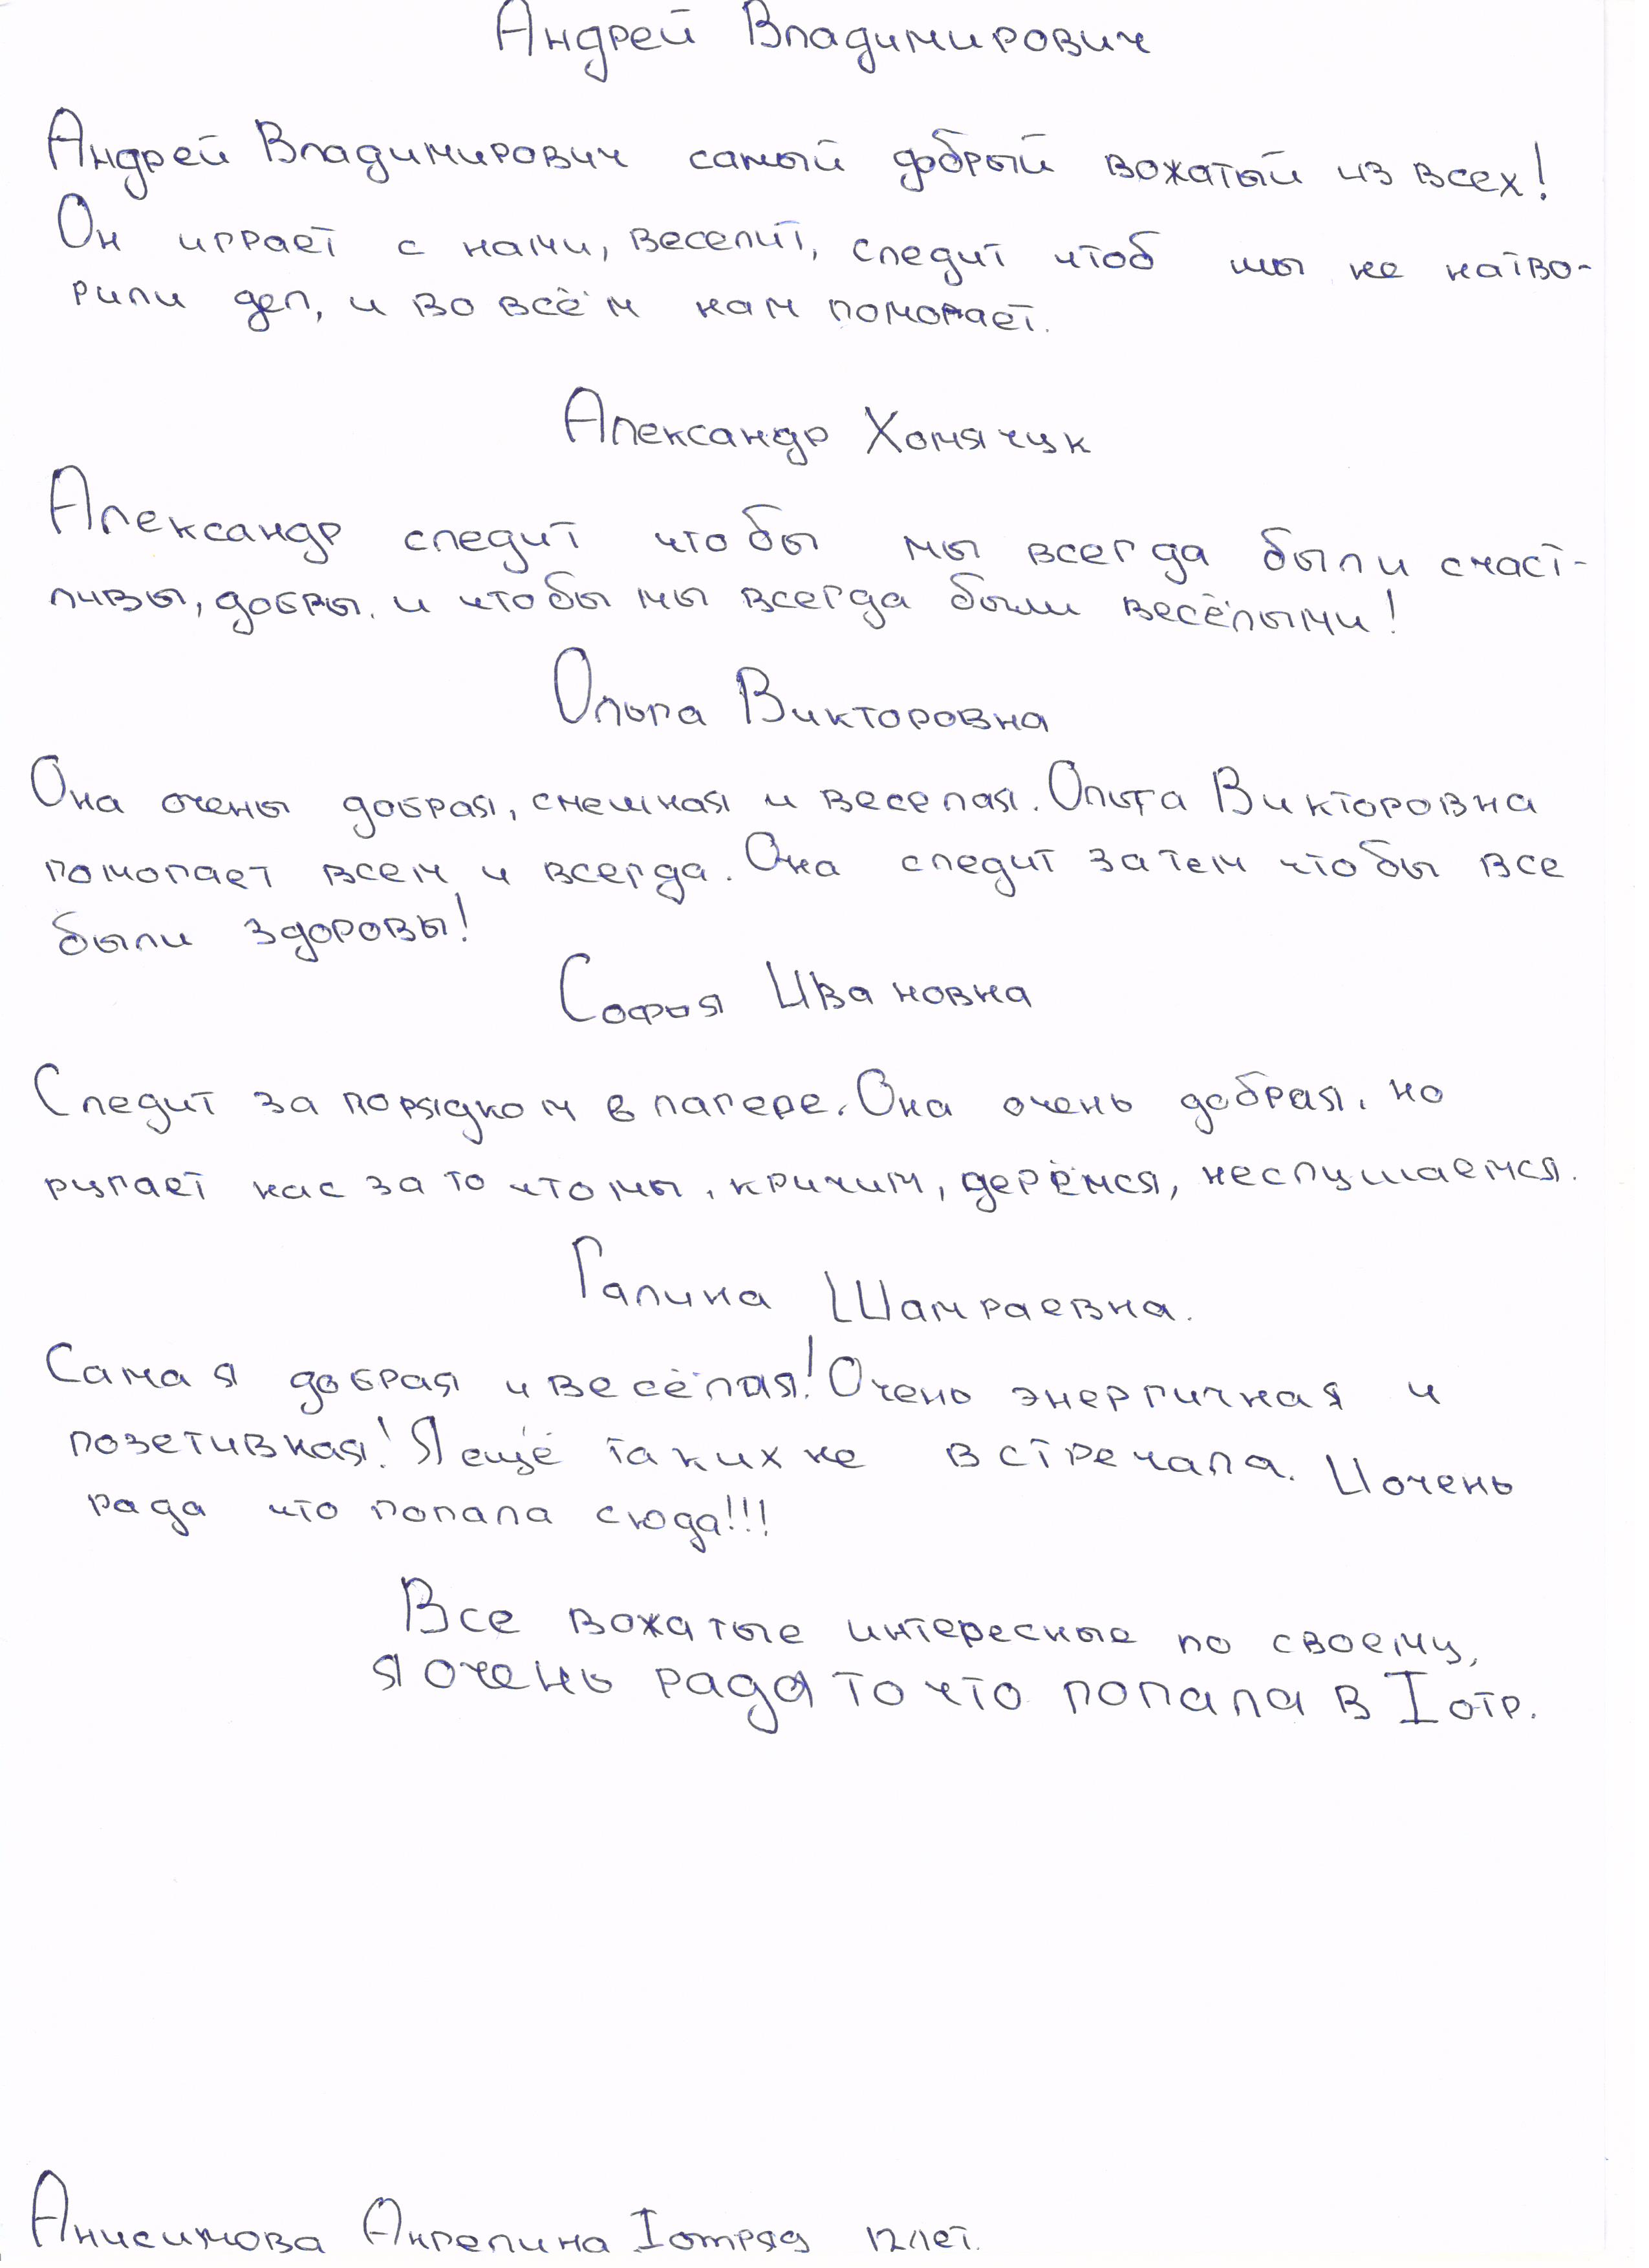 Андрей Владимирович
Андрей Владимирович самый добрый вожатый из всех!
Он играет с нами, веселит, следит чтоб мы не натво-
рили дел, и во всём нам помогает.
Александр Хомячук
Александр следит чтобы мы всегда были счаст-
ливы, добры, и чтобы мы всегда были весёлыми!
Ольга Викторовна
Она очень добрая, смешная и веселая. Ольга Викторовна
помогает всем и всегда. Она следит за тем чтобы все
были здоровы!
Софья Ивановна
Следит за порядком в лагере. Она очень добрая, но
ругает нас за то что мы, кричим, дерёмся, неслушаемся.
Галина Шамраевна.
Самая добрая и весёлая! Очень энергичная и
позетивная! Я ещё таких не встречала. И очень
рада что попала сюда!!!
Все вожатые интересные по своему,
я очень рада то что попала в I отр.
Анисимова Ангелина I отряд 12 лет.